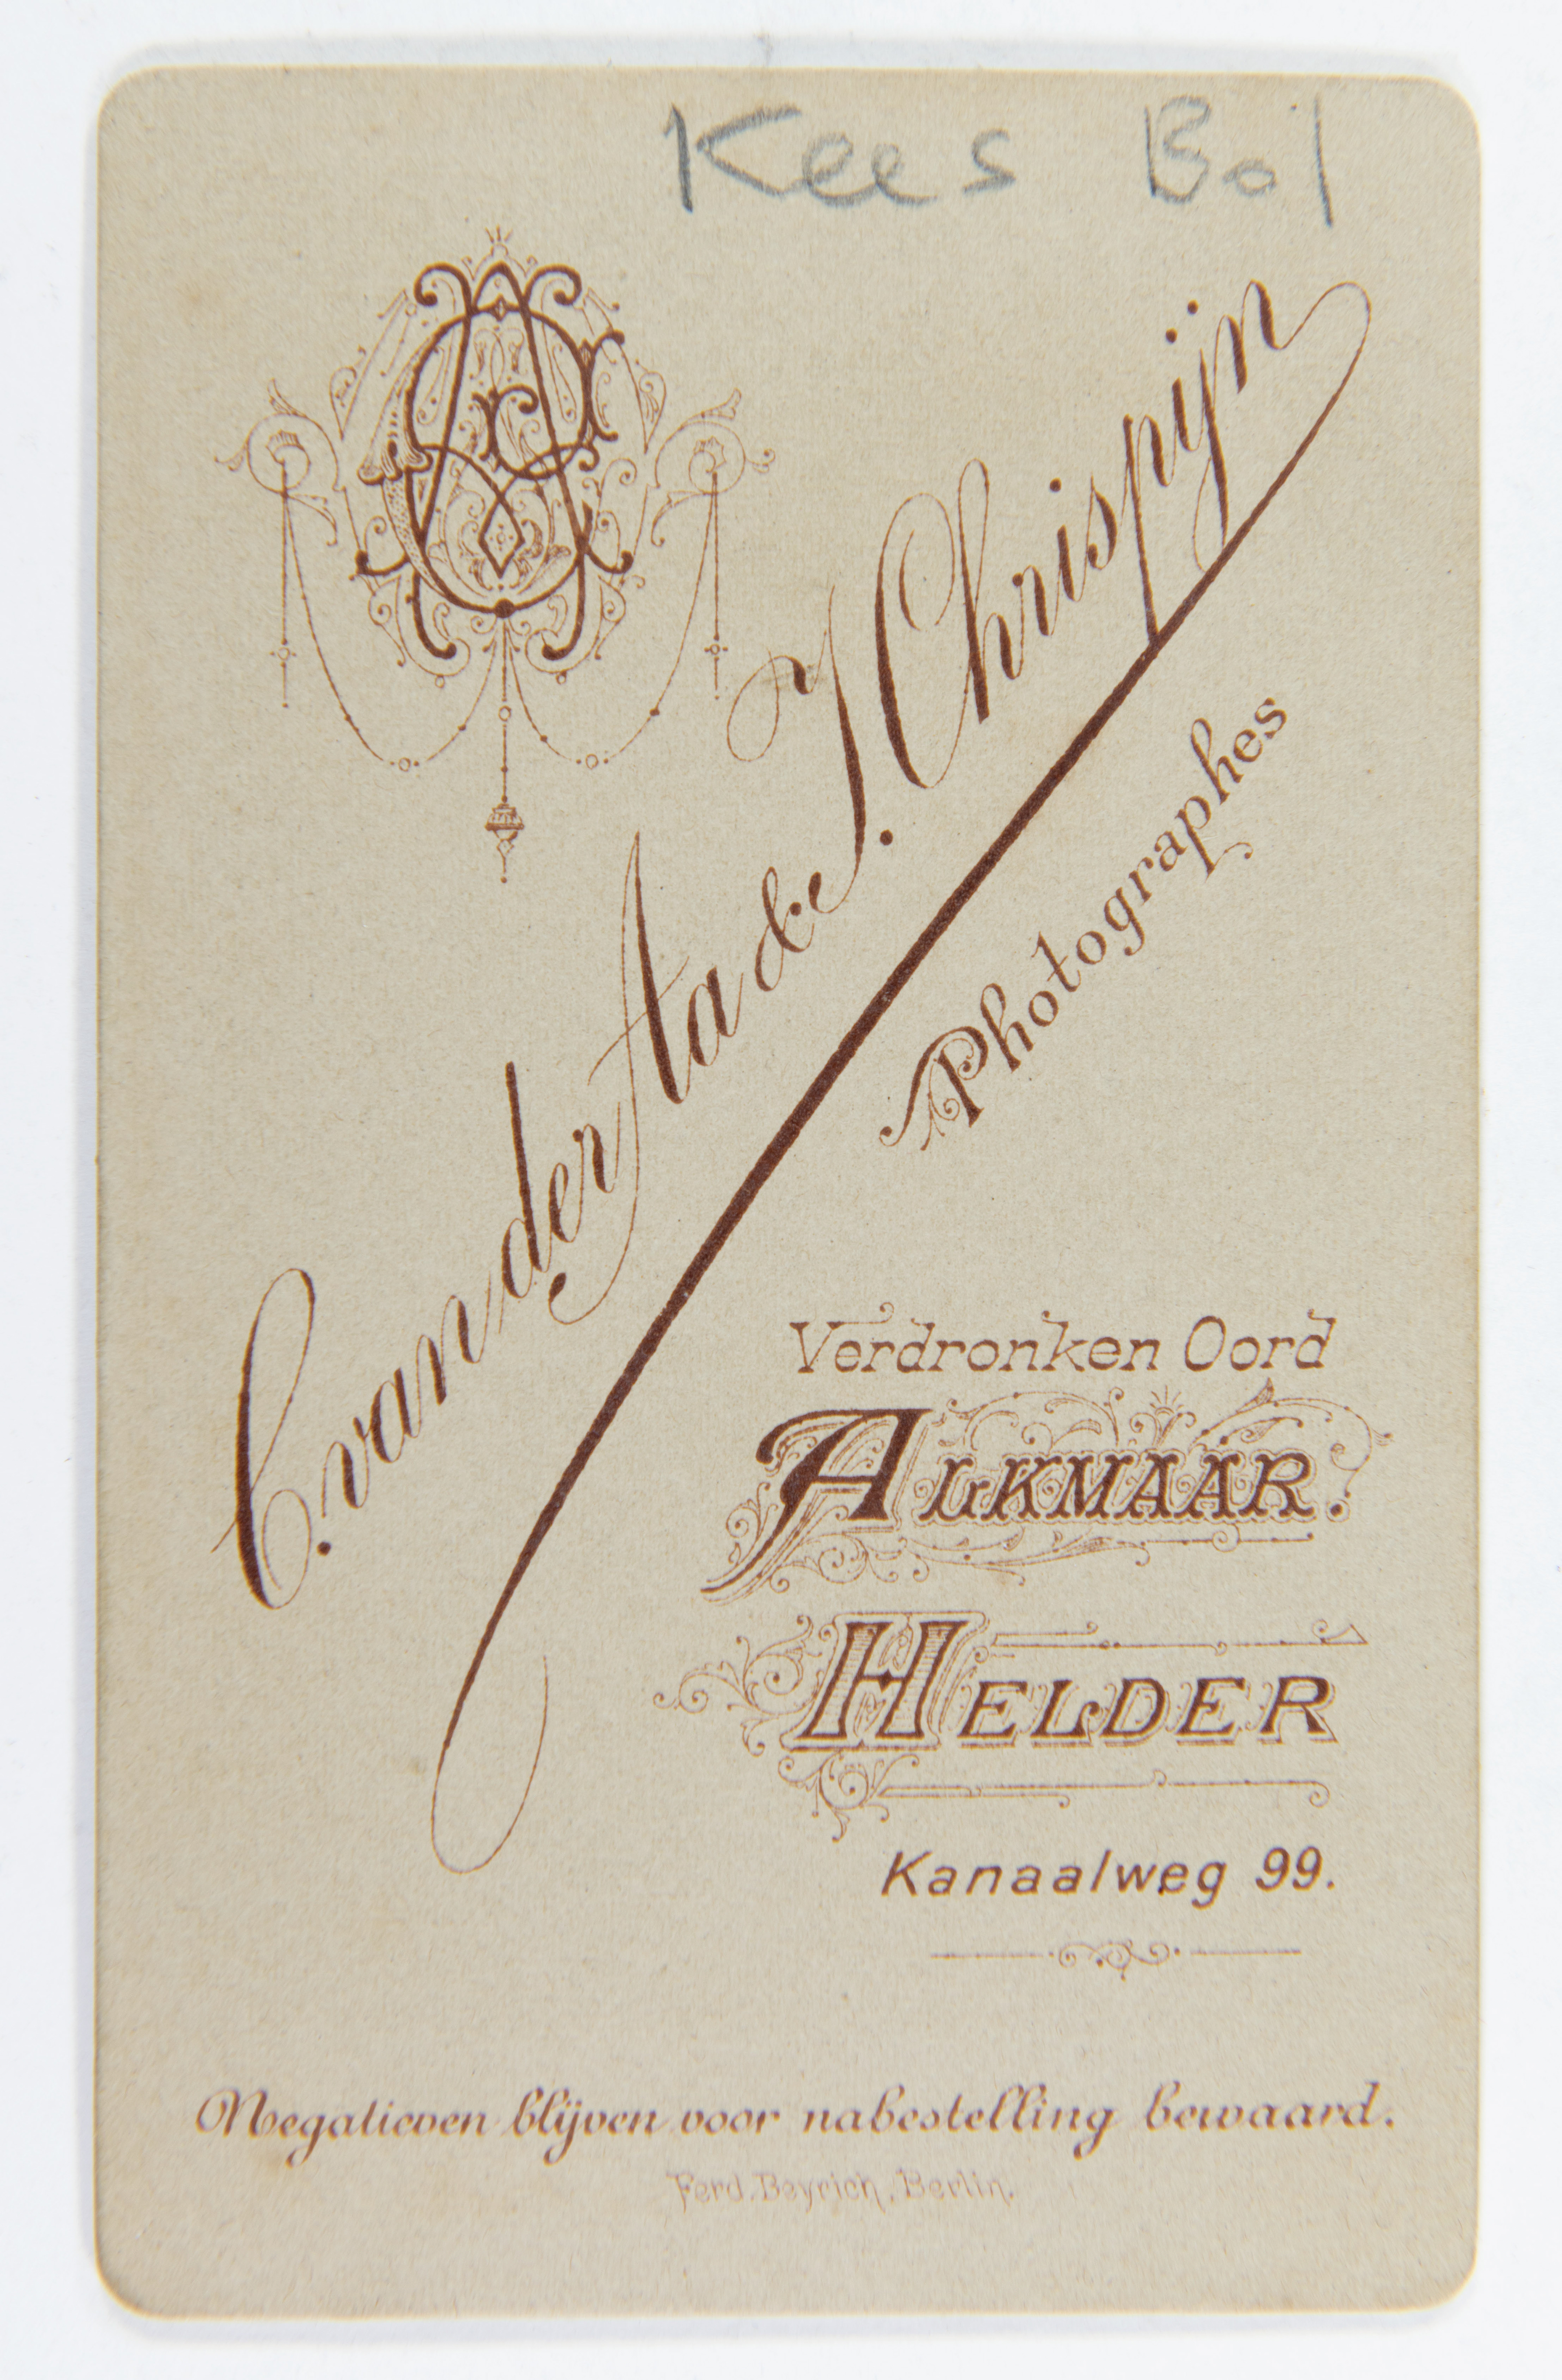 Kees Bol
C. van der Aa & J. Chrispijn
Photographes
Verdronken Oord
ALKMAAR.
HELDER
Kanaalweg 99.
Negatieven blijven voor nabestelling bewaard.
Ferd. Beyrich, Berlin.